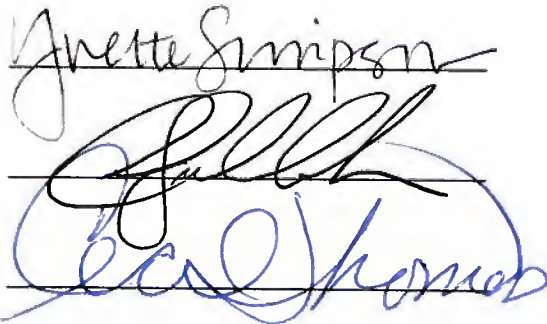 Yvette Simpson
Cecil Thomas